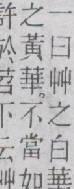 一曰艸之白華
之黃華。不當如
許於苕下云艸